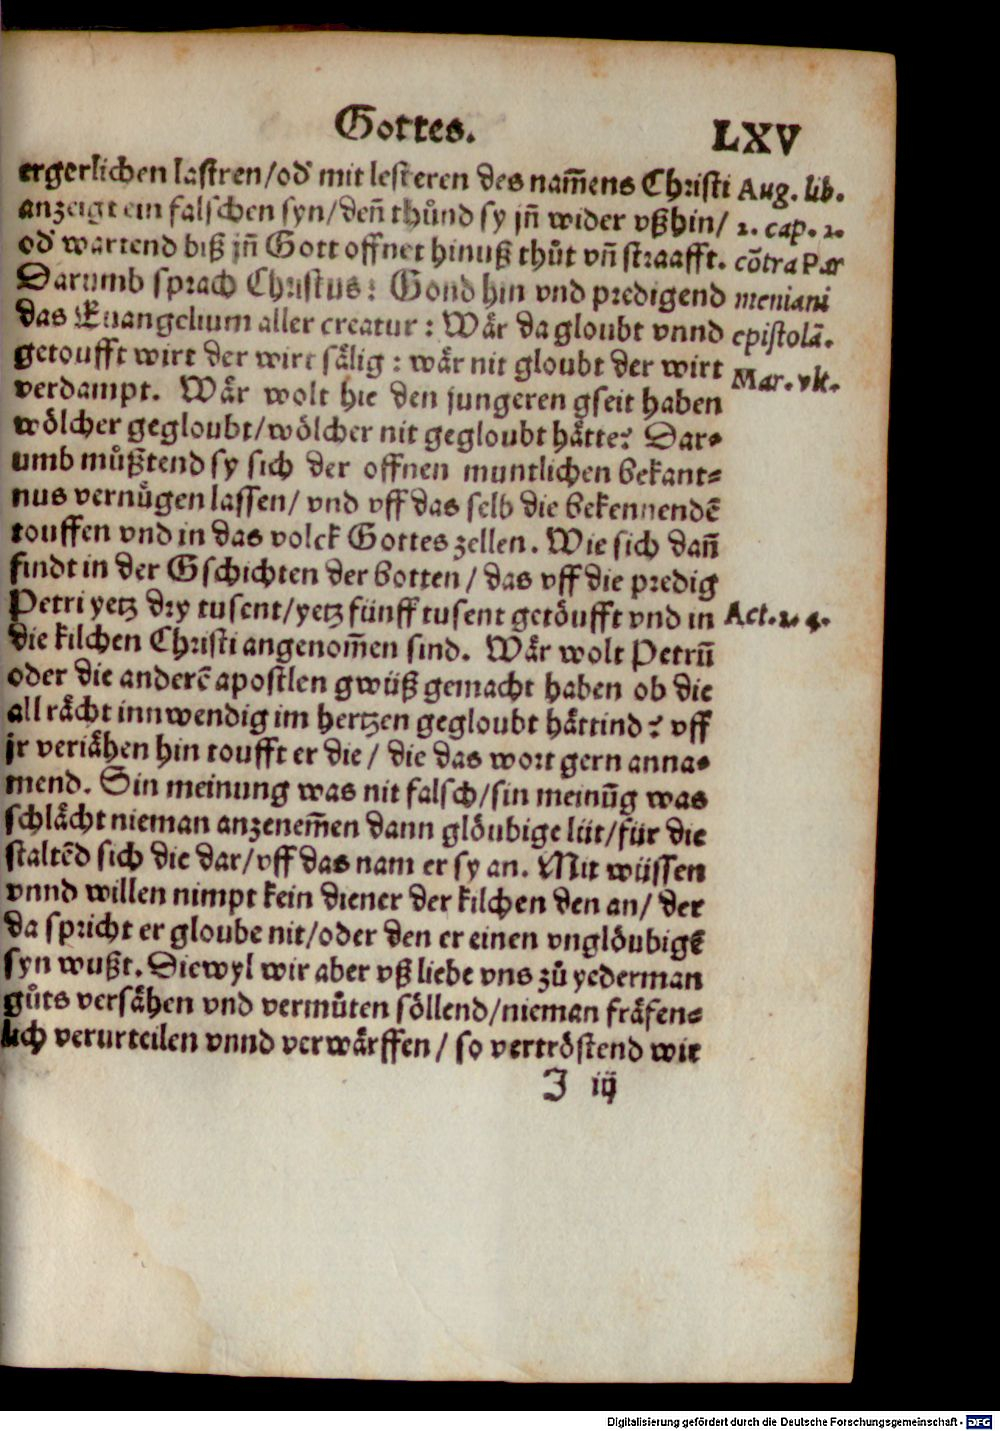 Gottes. LXV
ergerlichen lastren/od' mit lesteren des nam̄ens Christi
anzeigt ein falschen syn/den̄ thůnd sy jn̄ wider vßhin/
od' wartend biß jn̄ Gott offnet hinuß thůt vn̄ straafft.
Darumb sprach Christus: Gond hin vnd predigend
das Euangelium aller creatur: Wår da gloubt vnnd
getoufft wirt der wirt sålig: wår nit gloubt der wirt
verdampt. Wår wolt hie den jungeren gseit haben
wölcher gegloubt/wölcher nit gegloubt håtte? Dar-
umb můßtend sy sich der offnen muntlichen bekant-
nus vernůgen lassen/ vnd vff das selb die bekennendē
touffen vnd in das volck Gottes zellen. Wie sich dan̄
findt in der Gschichten der botten/ das vff die predig
Petri yetz dry tusent/yetz fünff tusent getöufft vnd in
die kilchen Christi angenom̄en sind. Wår wolt Petrū
oder die anderē apostlen gwüß gemacht haben ob die
all råcht innwendig im hertzen gegloubt håttind? vff
jr veriåhen hin toufft er die/ die das wort gern anna-
mend. Sin meinung was nit falsch/sin meinūg was
schlåcht nieman anzenem̄en dann glöubige lüt/für die
staltēd sich die dar/vff das nam er sy an. Mit wüssen
vnnd willen nimpt kein diener der kilchen den an/ der
da spricht er gloube nit/oder den er einen vnglöubigē
syn wußt. Diewyl wir aber vß liebe vns zů yederman
gůts versåhen vnd vermůten söllend/nieman fråfen-
lich verurteilen vnnd verwårffen/ so vertröstend wir
J iij
Aug. lib.
2. cap. 2.
cōtra Par
meniani
epistolā.
Mar. vlt.
Act. 2. 4.
Digitalisierung gefördert durch die Deutsche Forschungsgemeinschaft - DFG